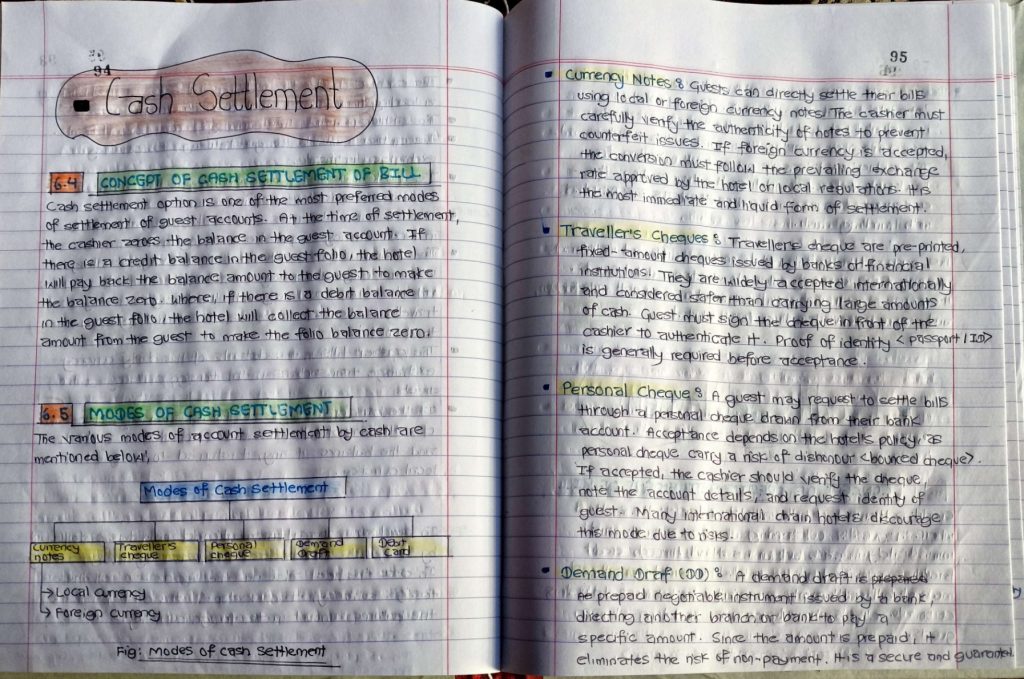 94
Cash Settlement
6.4 CONCEPT OF CASH SETTLEMENT OF BILL
Cash settlement option is one of the most preferred modes
of settlement of guest accounts. At the time of settlement,
the cashier zeroes the balance in the guest account. If
there is a credit balance in the guest folio, the hotel
will pay back the balance amount to the guest to make
the balance zero. where, if there is a debit balance
in the guest folio, the hotel will collect the balance
amount from the guest to make the folio balance zero.
6.5 MODES OF CASH SETTLEMENT
The various modes of account settlement by cash are
mentioned below,
Modes of Cash Settlement
Currency notes
Traveller's cheque
Personal cheque
Demand Draft
Debit card
→ Local currency
→ Foreign currency
Fig: Modes of cash settlement
95
• Currency Notes : Guests can directly settle their bills
using local or foreign currency notes. The cashier must
carefully verify the authenticity of notes to prevent
counterfeit issues. If foreign currency is accepted,
the conversion must follow the prevailing exchange
rate approved by the hotel or local regulations. It is
the most immediate and liquid form of settlement.
• Traveller's Cheques : Traveller's cheque are pre-printed,
fixed-amount cheques issued by banks or financial
institutions. They are widely accepted internationally
and considered safer than carrying large amounts
of cash. Guest must sign the cheque in front of the
cashier to authenticate it. Proof of identity <passport / ID>
is generally required before acceptance.
• Personal Cheque : A guest may request to settle bills
through a personal cheque drawn from their bank
account. Acceptance depends on the hotel's policy, as
personal cheque carry a risk of dishonour <bounced cheque>.
If accepted, the cashier should verify the cheque,
note the account details, and request identity of
guest. Many international chain hotels discourage
this mode due to risks.
• Demand Draf (DD) : A demand draft is prepared
Ae prepad negotiable instrument issued by a bank,
directing another branch or bank to pay a
specific amount. Since the amount is prepaid, it
eliminates the risk of non-payment. It is a secure and